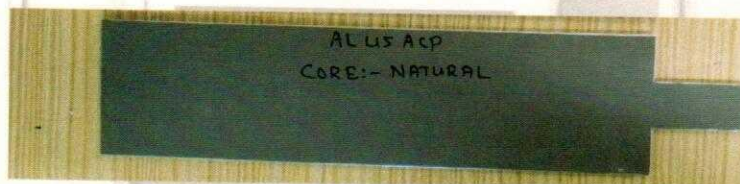 AL US ACP
CORE:- NATURAL